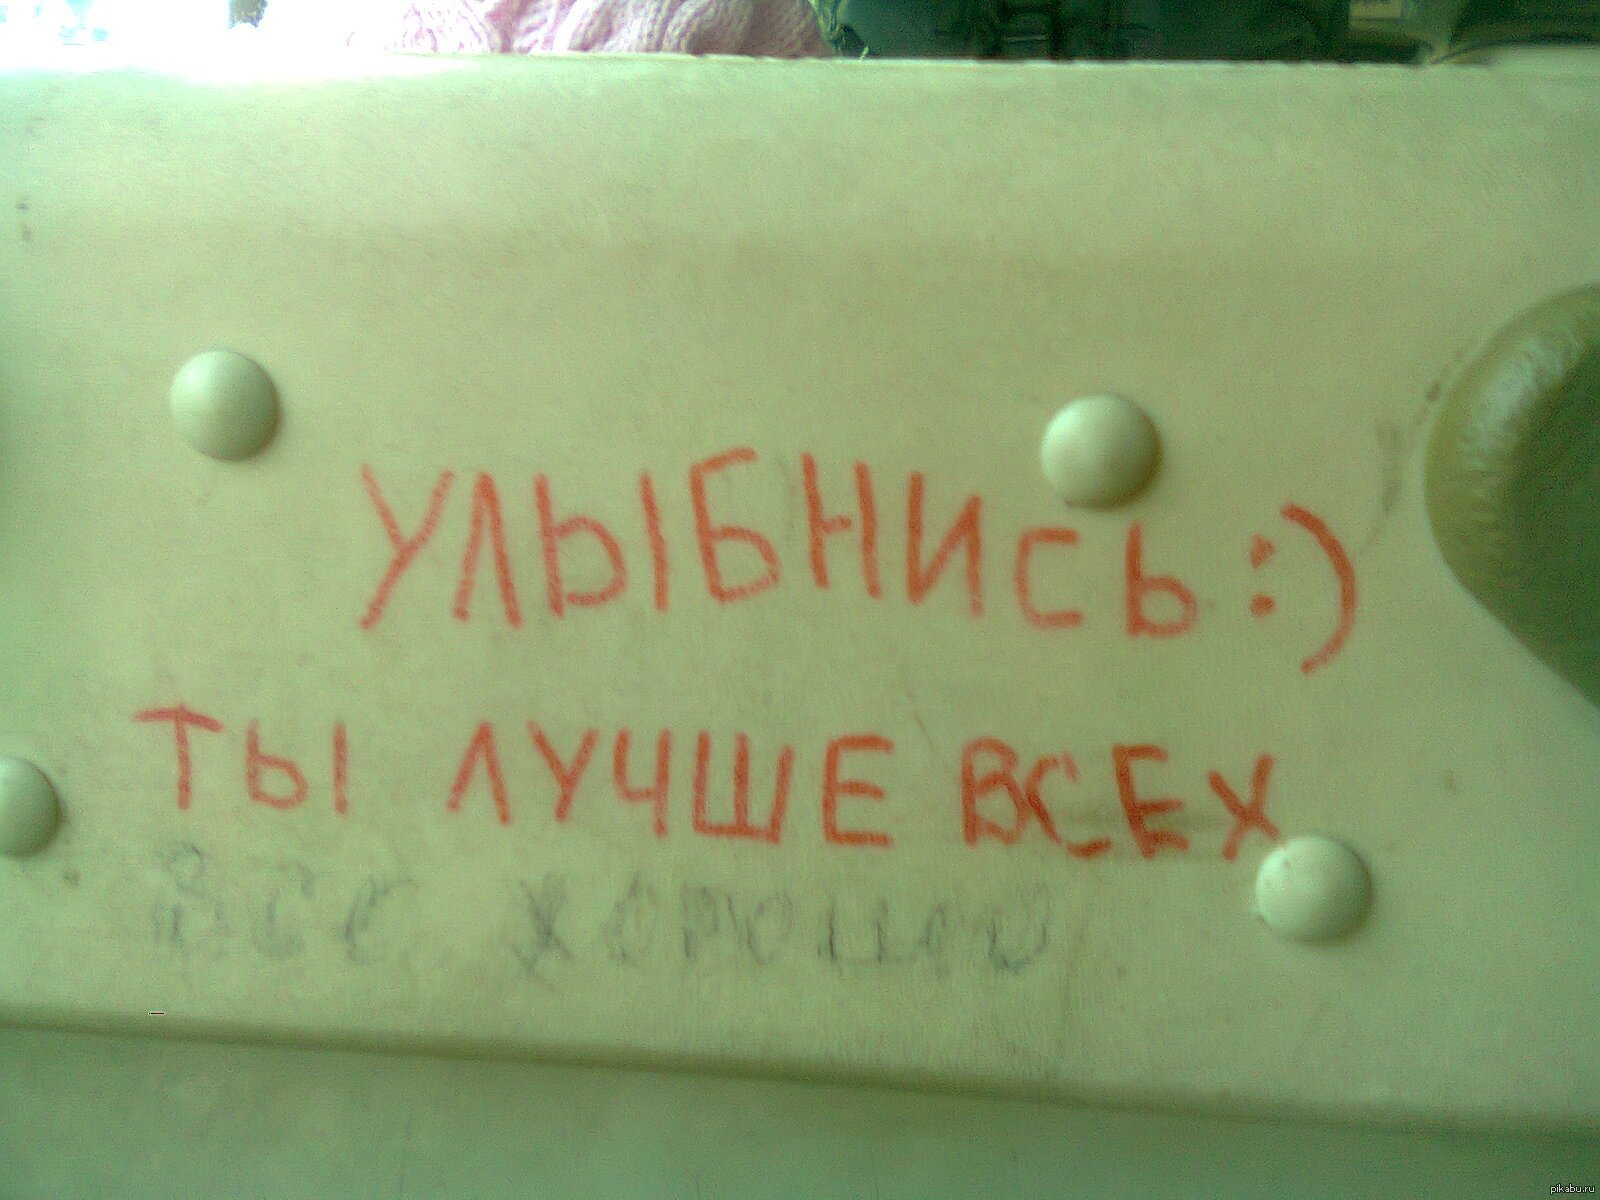 УЛЫБНИСЬ :)
ТЫ ЛУЧШЕ ВСЕХ
ВСЕ ХОРОШО
pikabu.ru